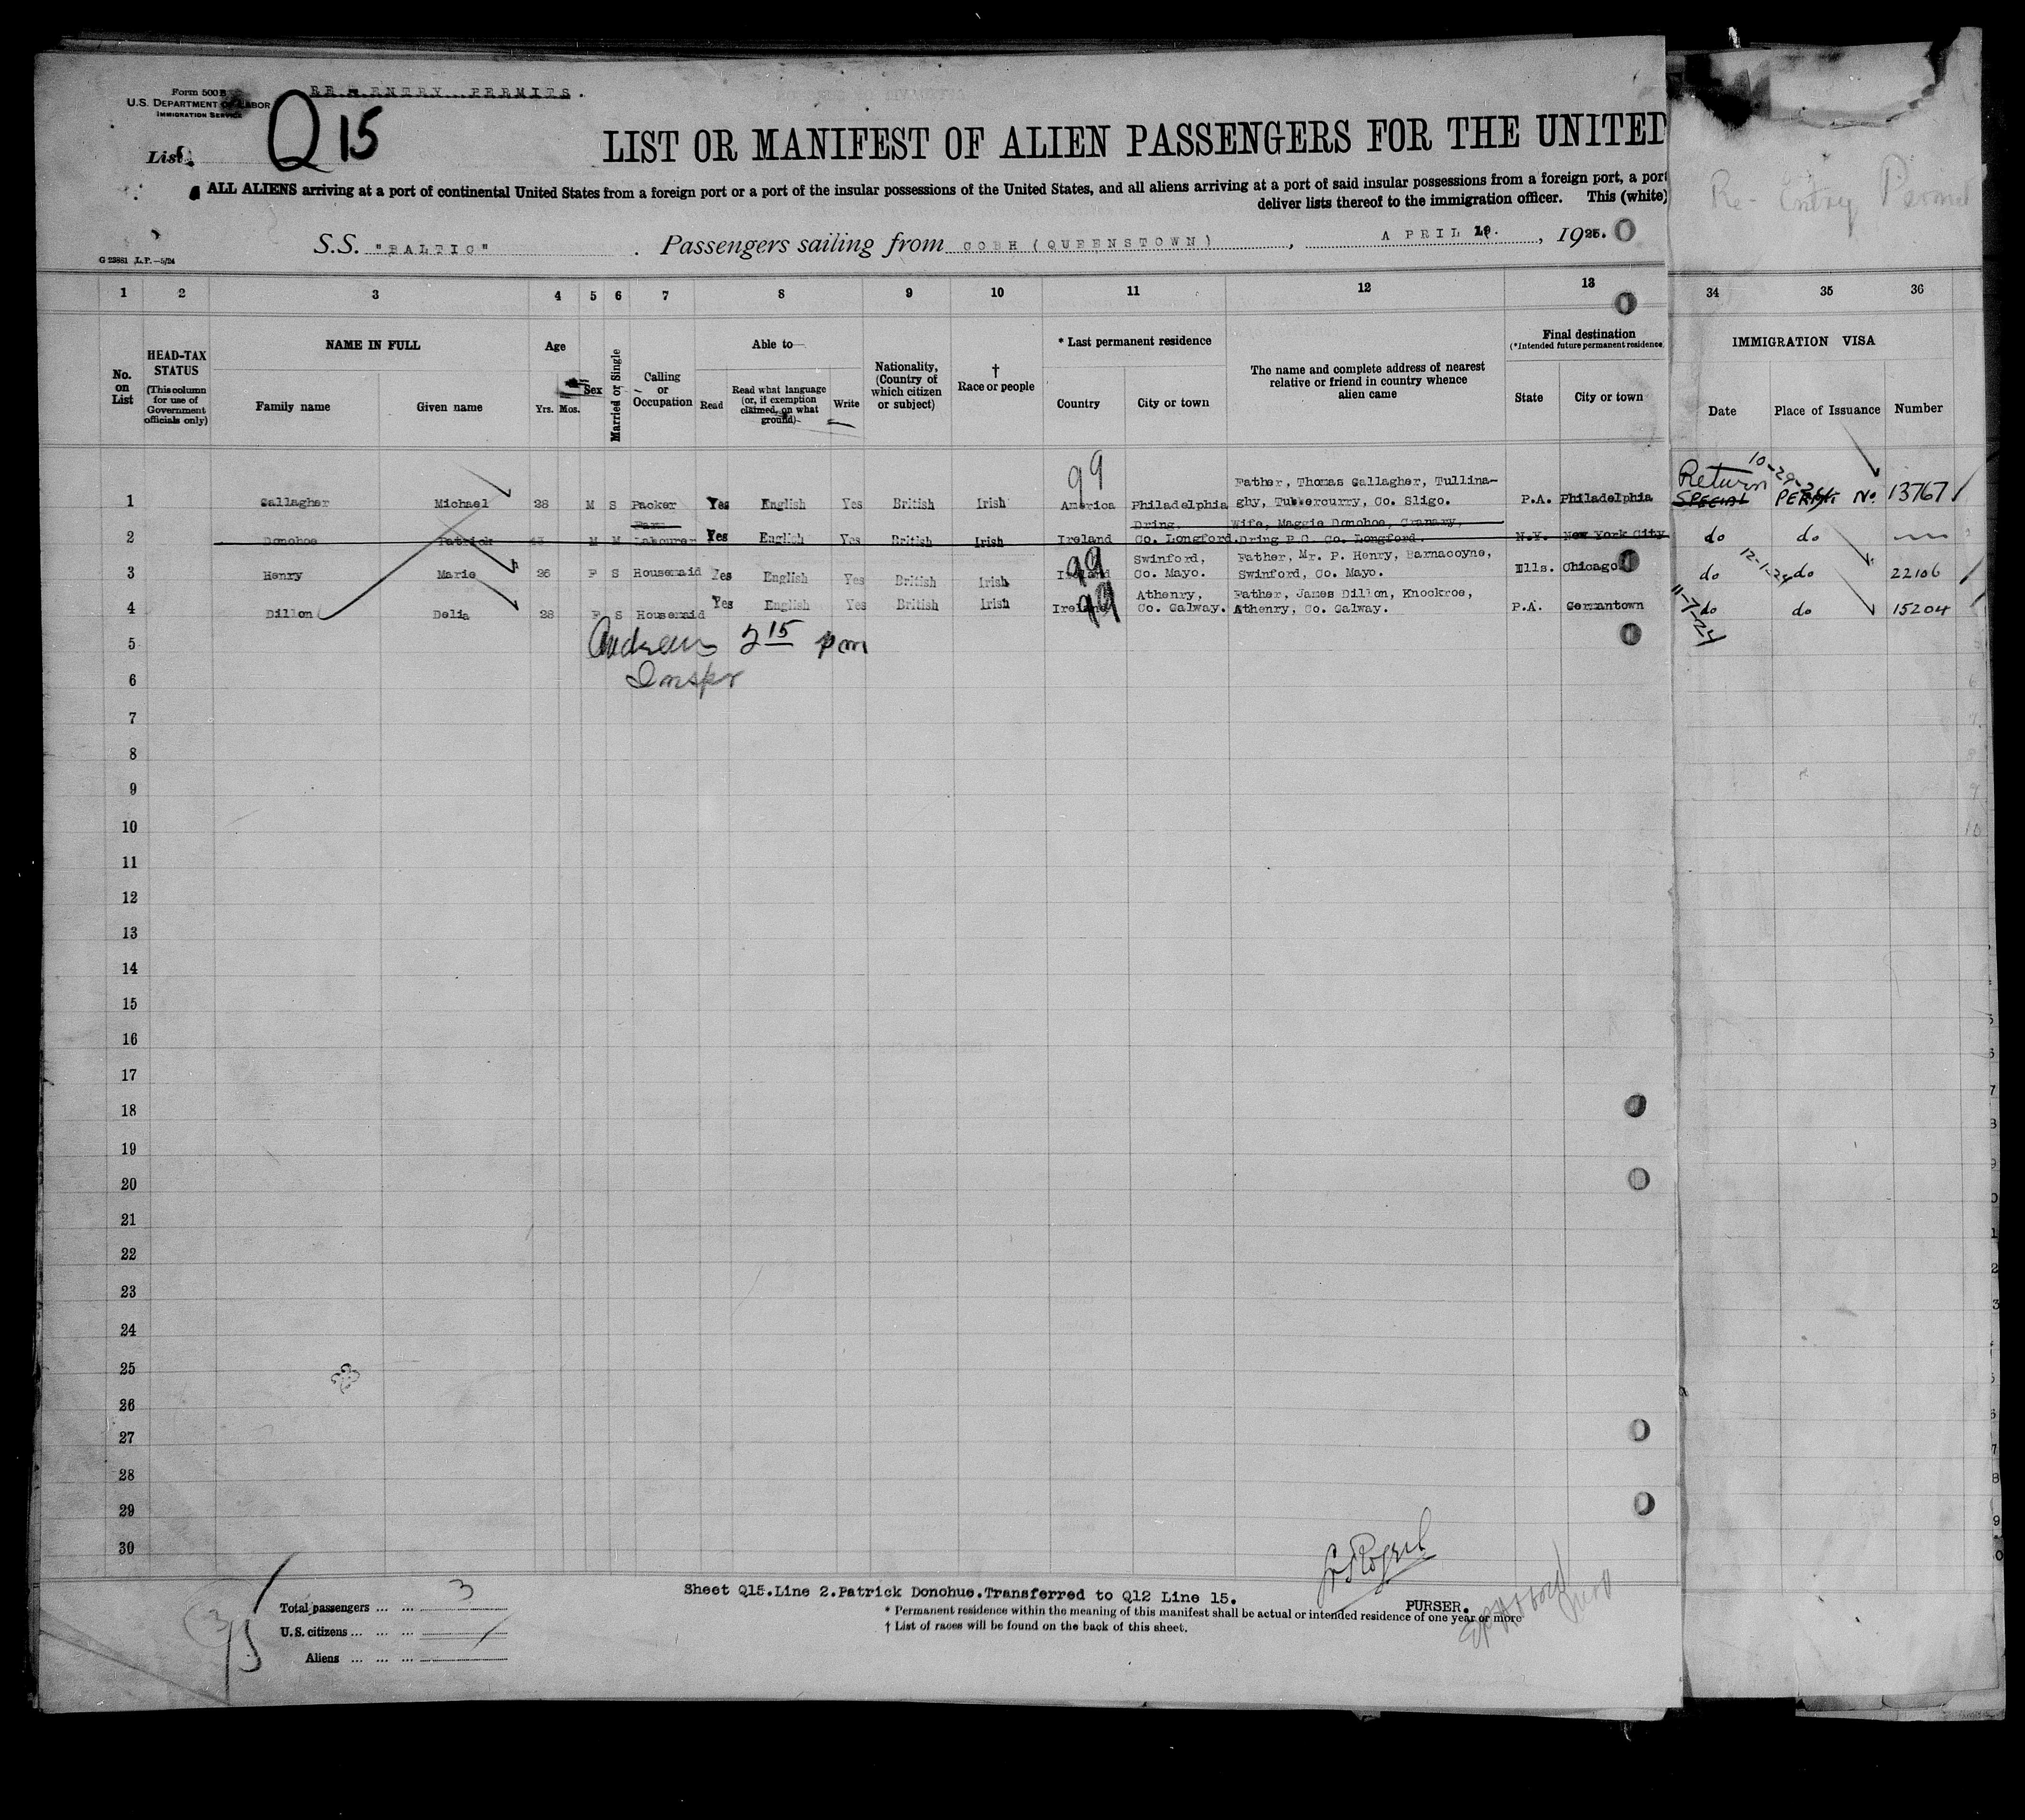 Form 500 B
U.S. DEPARTMENT OF LABOR
IMMIGRATION SERVICE
RE-ENTRY PERMITS.
List Q 15
LIST OR MANIFEST OF ALIEN PASSENGERS FOR THE UNITED
ALL ALIENS arriving at a port of continental United States from a foreign port or a port of the insular possessions of the United States, and all aliens arriving at a port of said insular possessions from a foreign port, a port
deliver lists thereof to the immigration officer. This (white)
Re-Entry Permit
S.S. "BALTIC" . Passengers sailing from COBH (QUEENSTOWN), APRIL 19., 1925.
G 23881 L.P.—5/24
1 2 3 4 5 6 7 8 9 10 11 12 13 34 35 36
No. on List
HEAD-TAX STATUS
(This column for use of Government officials only)
NAME IN FULL
Family name Given name
Age
Yrs. Mos.
Sex
Married or Single
Calling or Occupation
Able to—
Read
Read what language (or, if exemption claimed, on what ground)
Write
Nationality, (Country of which citizen or subject)
† Race or people
* Last permanent residence
Country City or town
The name and complete address of nearest relative or friend in country whence alien came
Final destination
(*Intended future permanent residence
State City or town
IMMIGRATION VISA
Date Place of Issuance Number
99 Father, Thomas Gallagher, Tullina- Return 10-29-24
1 Gallagher Michael 28 M S Packer Yes English Yes British Irish America Philadelphia ghy, Tubbercurry, Co. Sligo. P.A. Philadelphia SPECIAL PERMIT No. 13767
Farm Dring, Wife, Maggie Donohoe, Cranary,
2 Donohoe Patrick M M Labourer Yes English Yes British Irish Ireland Co. Longford. Dring P.O. Co. Longford. N.Y. New York City do do
99 Swinford, Father, Mr. P. Henry, Barnacoyne, 12-1-24
3 Henry Marie 26 F S Housemaid Yes English Yes British Irish Ireland Co. Mayo. Swinford, Co. Mayo. Ills. Chicago do do 22106
99 Athenry, Father, James Dillon, Knockroe, 11-7-24
4 Dillon Delia 28 F S Housemaid Yes English Yes British Irish Ireland Co. Galway. Athenry, Co. Galway. P.A. Germantown do do 15204
5 Andrews 2 15 pm
6 Inspr
7
8
9
10
11
12
13
14
15
16
17
18
19
20
21
22
23
24
25
26
27
28
29
30
Sheet Q15.Line 2.Patrick Donohue.Transferred to Q12 Line 15.
PURSER.
Total passengers ... ... 3
U.S. citizens ... ... ...
Aliens ... ... ...
* Permanent residence within the meaning of this manifest shall be actual or intended residence of one year or more
† List of races will be found on the back of this sheet.